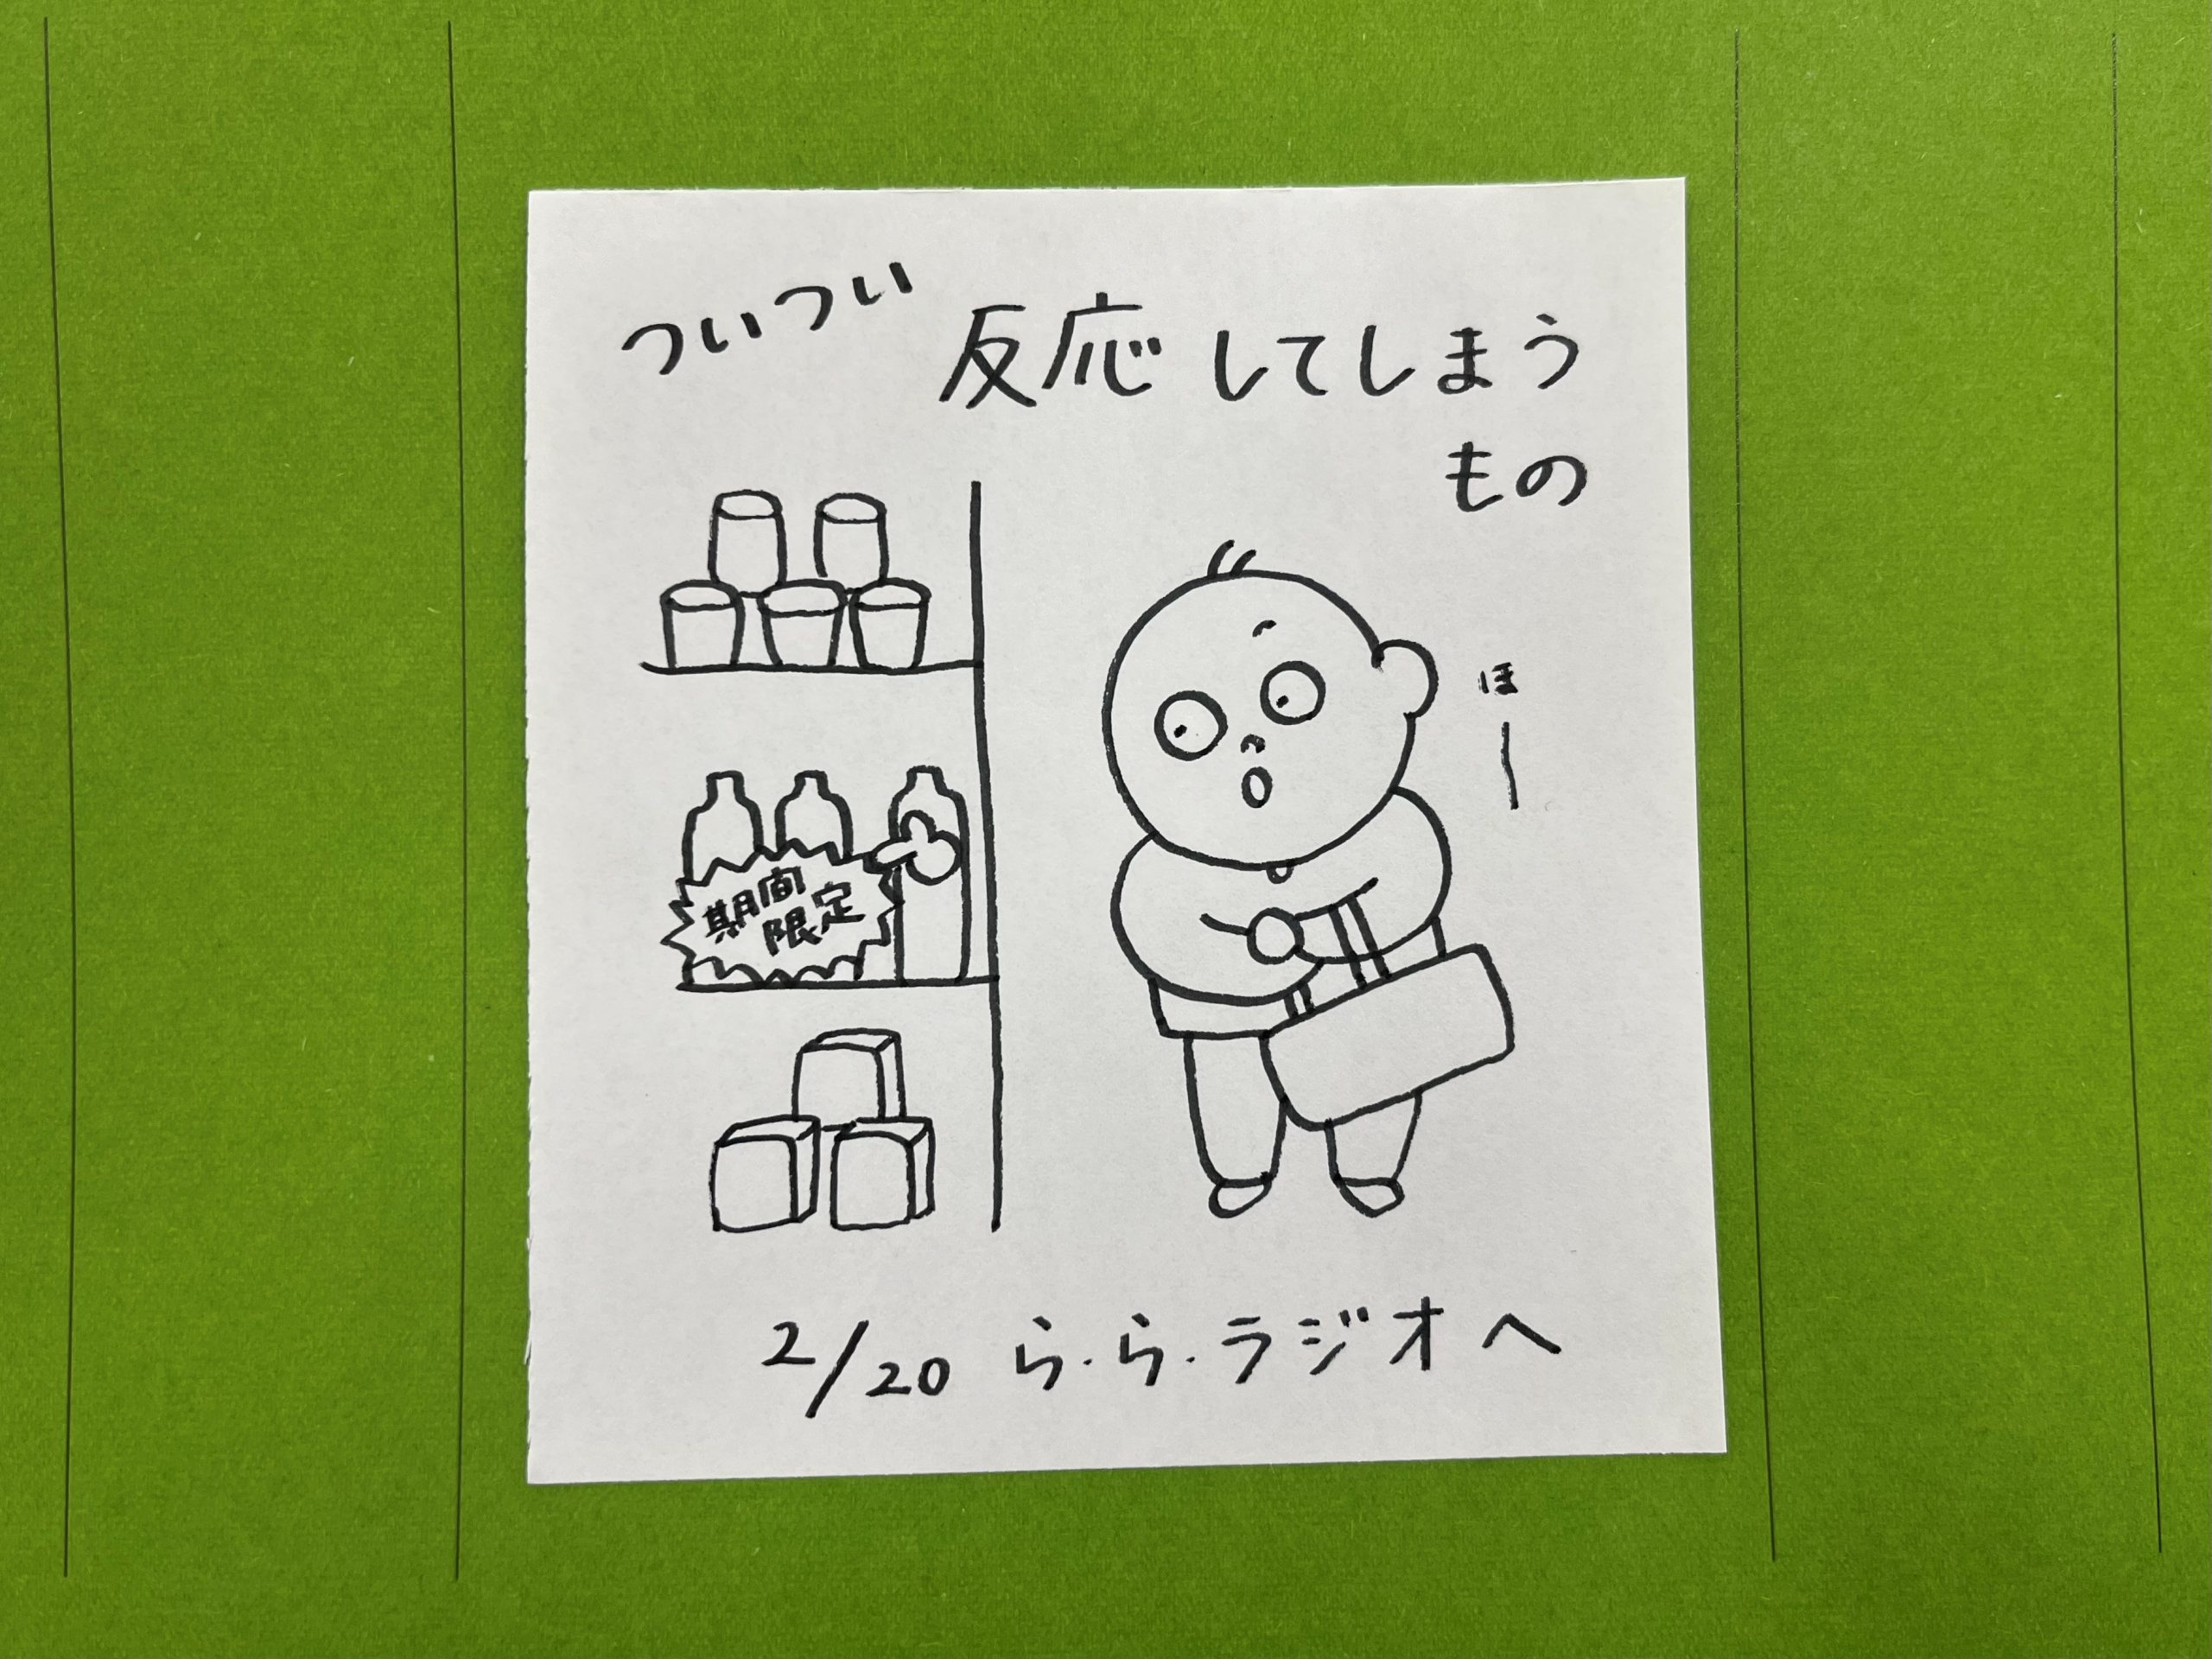 ついつい反応してしまう
もの
ほー
期間
限定
2/20 ら・ら・ラジオへ